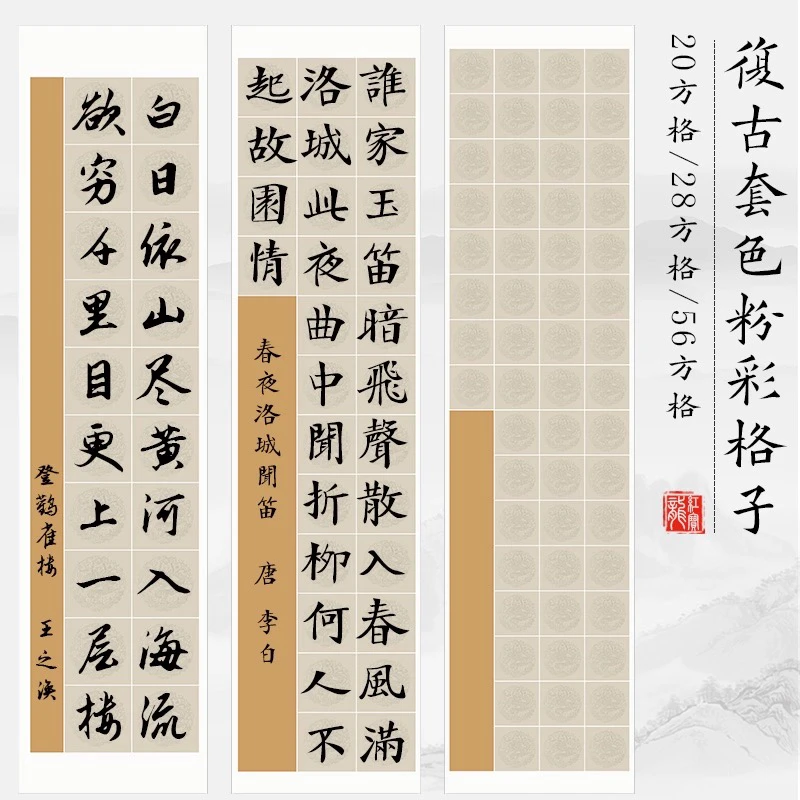 復古套色粉彩格子
20方格/28方格/56方格
紅寶龍
誰家玉笛暗飛聲散入春風滿
洛城此夜曲中聞折柳何人不
起故園情
春夜洛城聞笛 唐 李白
白日依山尽黄河入海流
欲穷千里目更上一层楼
登鸛雀楼 王之涣